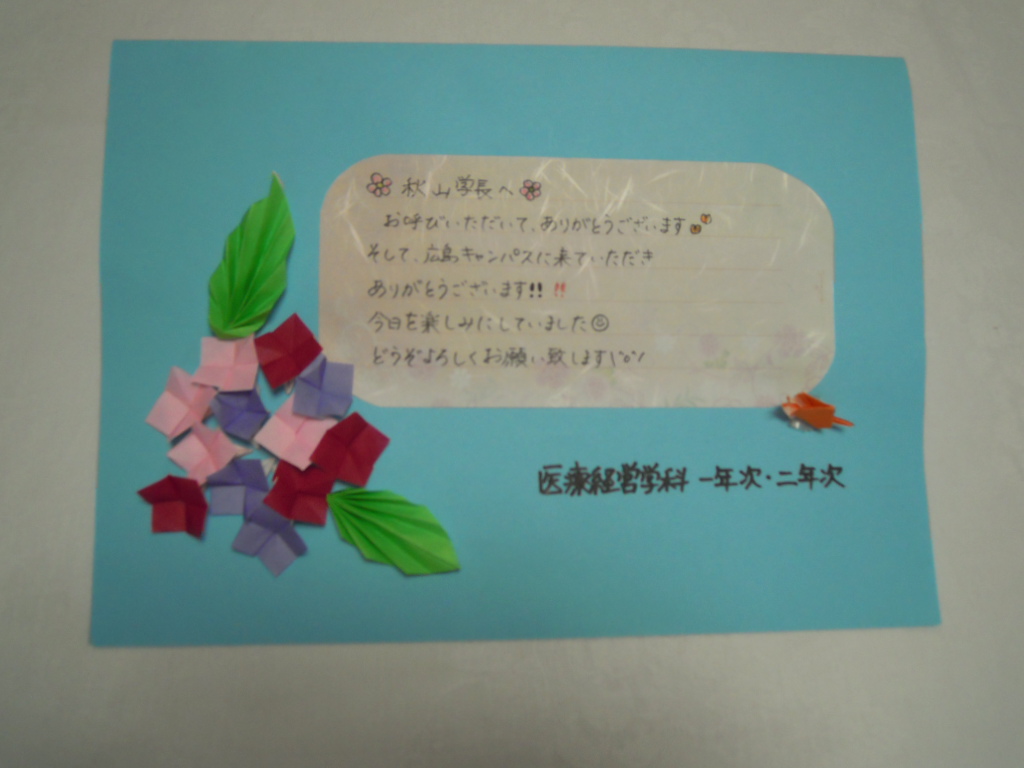 秋山学長へ
お呼びいただいて、ありがとうございます
そして、広島キャンパスに来ていただき
ありがとうございます!! !!
今日を楽しみにしていました☺
どうぞよろしくお願い致します\(^o^)/
医療経営学科 一年次・二年次